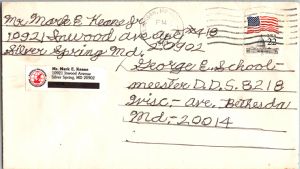 Mr. Mark E. Keane Jr.
10921 Inwood ave apt #418
Silver Spring Md, 20902
Mr. Mark E. Keane
10921 Inwood Avenue
Silver Spring, MD 20902
22
George E. School-
meester D.D.S. 8218
Wisc.- ave. Bethesda
Md.- 20014